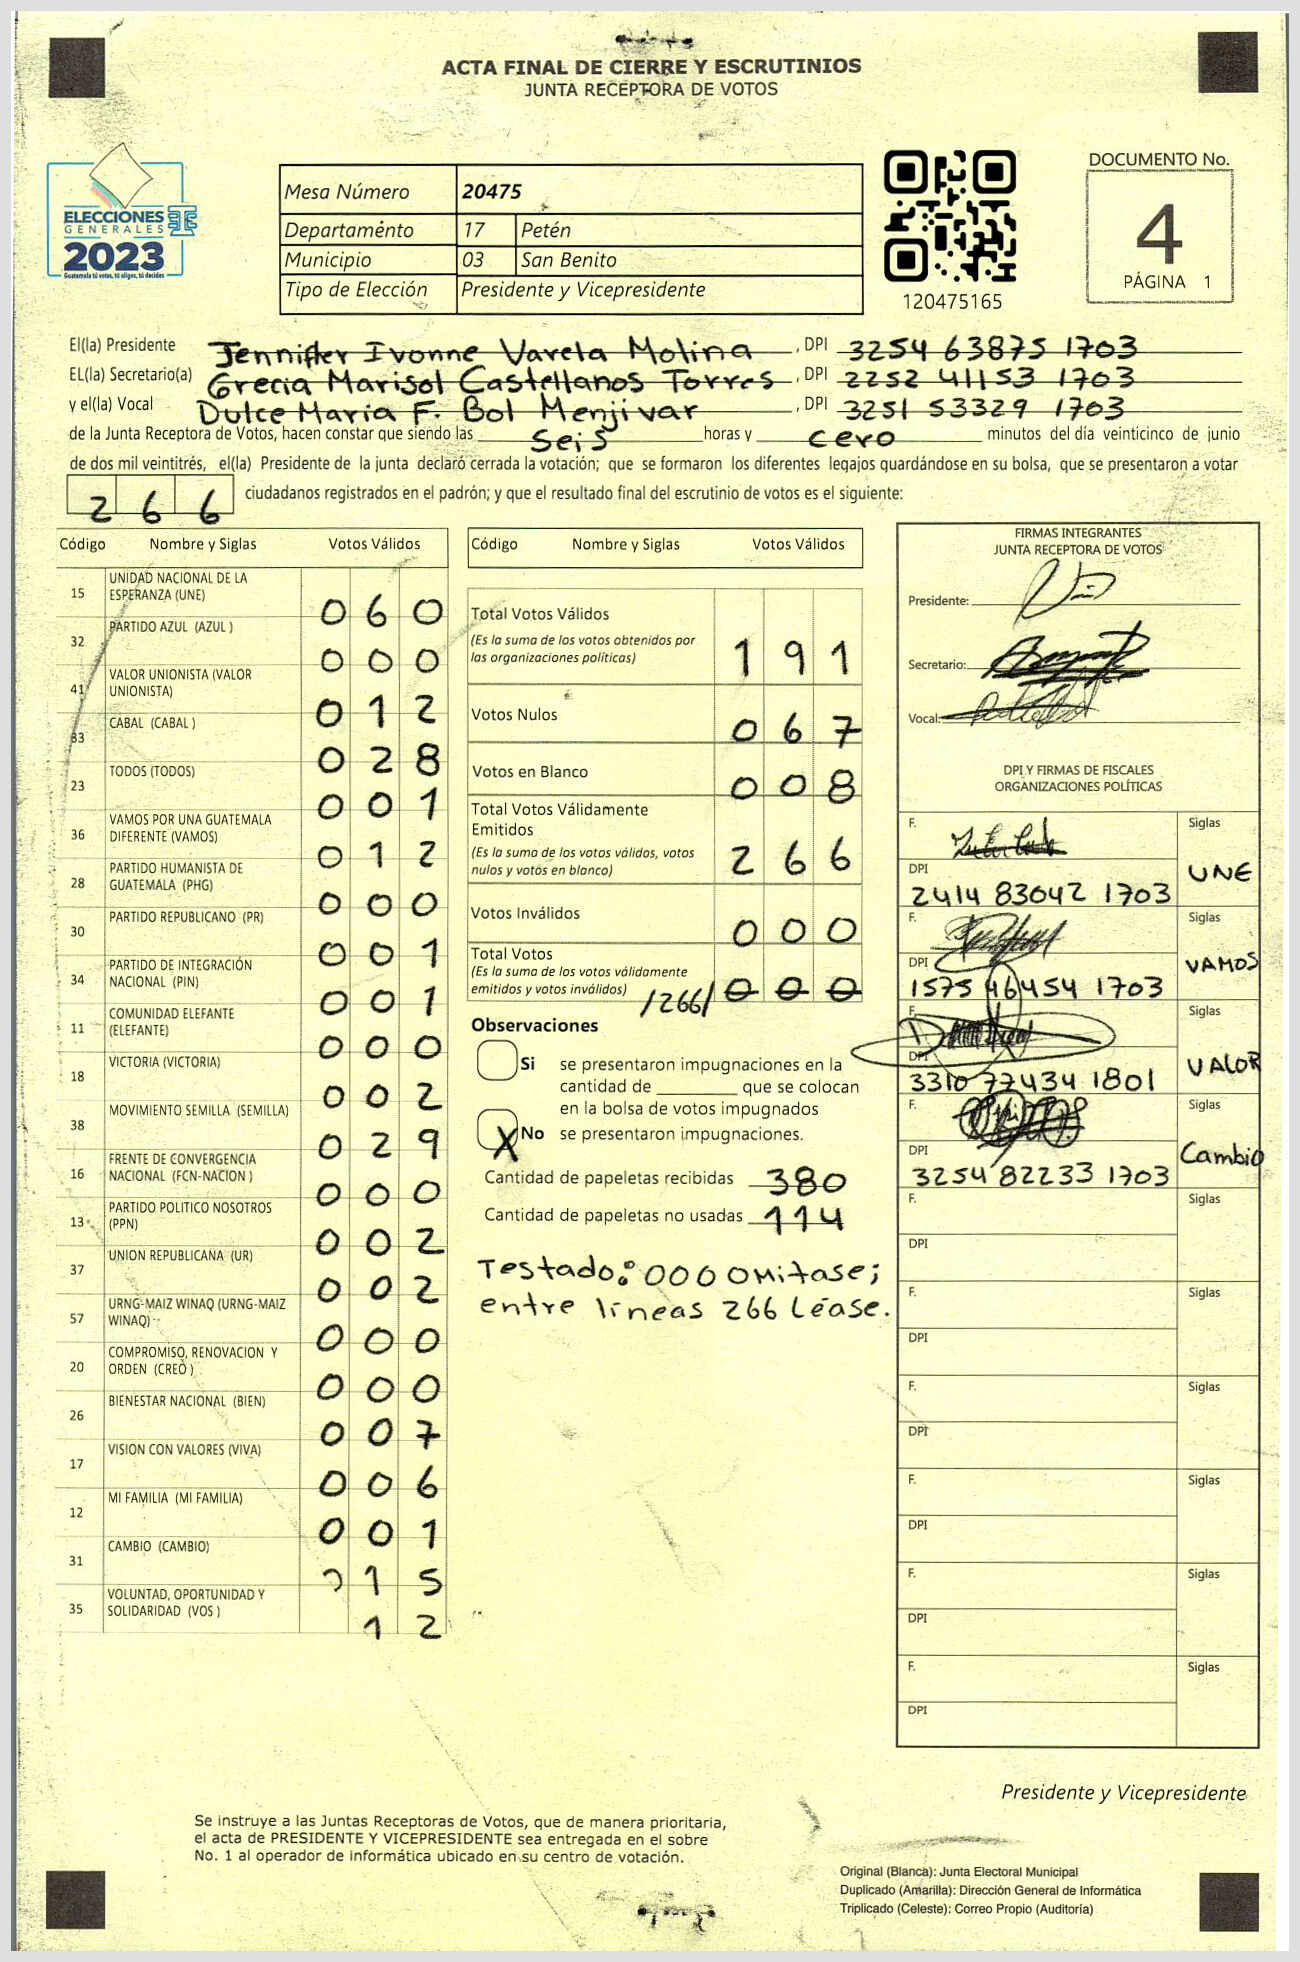 ACTA FINAL DE CIERRE Y ESCRUTINIOS
JUNTA RECEPTORA DE VOTOS
ELECCIONES
GENERALES
2023
Guatemala tú votas, tú eliges, tú decides
Mesa Número 20475
Departamento 17 Petén
Municipio 03 San Benito
Tipo de Elección Presidente y Vicepresidente
120475165
DOCUMENTO No.
4
PÁGINA 1
El(la) Presidente Jennifer Ivonne Varela Molina , DPI 3254 63875 1703
EL(la) Secretario(a) Grecia Marisol Castellanos Torres , DPI 2252 41153 1703
y el(la) Vocal Dulce María F. Bol Menjivar , DPI 3251 53329 1703
de la Junta Receptora de Votos, hacen constar que siendo las seis horas y cero minutos del día veinticinco de junio
de dos mil veintitrés, el(la) Presidente de la junta declaró cerrada la votación; que se formaron los diferentes legajos quardándose en su bolsa, que se presentaron a votar
266 ciudadanos registrados en el padrón; y que el resultado final del escrutinio de votos es el siguiente:
Código Nombre y Siglas Votos Válidos
15 UNIDAD NACIONAL DE LA ESPERANZA (UNE) 060
32 PARTIDO AZUL (AZUL ) 000
41 VALOR UNIONISTA (VALOR UNIONISTA) 012
33 CABAL (CABAL ) 028
23 TODOS (TODOS) 001
36 VAMOS POR UNA GUATEMALA DIFERENTE (VAMOS) 012
28 PARTIDO HUMANISTA DE GUATEMALA (PHG) 000
30 PARTIDO REPUBLICANO (PR) 001
34 PARTIDO DE INTEGRACIÓN NACIONAL (PIN) 001
11 COMUNIDAD ELEFANTE (ELEFANTE) 000
18 VICTORIA (VICTORIA) 002
38 MOVIMIENTO SEMILLA (SEMILLA) 029
16 FRENTE DE CONVERGENCIA NACIONAL (FCN-NACION ) 000
13 PARTIDO POLITICO NOSOTROS (PPN) 002
37 UNION REPUBLICANA (UR) 002
57 URNG-MAIZ WINAQ (URNG-MAIZ WINAQ) 000
20 COMPROMISO, RENOVACION Y ORDEN (CREO ) 000
26 BIENESTAR NACIONAL (BIEN) 007
17 VISION CON VALORES (VIVA) 006
12 MI FAMILIA (MI FAMILIA) 001
31 CAMBIO (CAMBIO) 015
35 VOLUNTAD, OPORTUNIDAD Y SOLIDARIDAD (VOS ) 12
Código Nombre y Siglas Votos Válidos
Total Votos Válidos
(Es la suma de los votos obtenidos por
las organizaciones políticas) 191
Votos Nulos 067
Votos en Blanco 008
Total Votos Válidamente
Emitidos
(Es la suma de los votos válidos, votos
nulos y votos en blanco) 266
Votos Inválidos 000
Total Votos
(Es la suma de los votos válidamente
emitidos y votos inválidos) /266/ 000
Observaciones
Si se presentaron impugnaciones en la
cantidad de ________ que se colocan
en la bolsa de votos impugnados
X No se presentaron impugnaciones.
Cantidad de papeletas recibidas 380
Cantidad de papeletas no usadas 114
Testado: 000 Omitase;
entre líneas 266 Léase.
FIRMAS INTEGRANTES
JUNTA RECEPTORA DE VOTOS
Presidente:
Secretario:
Vocal:
DPI Y FIRMAS DE FISCALES
ORGANIZACIONES POLÍTICAS
F. Siglas
DPI UNE
2414 83042 1703
F. Siglas
DPI VAMOS
1575 46454 1703
F. Siglas
DPI VALOR
3310 77434 1801
F. Siglas
DPI Cambio
3254 82233 1703
F. Siglas
DPI
F. Siglas
DPI
F. Siglas
DPI
F. Siglas
DPI
F. Siglas
DPI
F. Siglas
DPI
Presidente y Vicepresidente
Se instruye a las Juntas Receptoras de Votos, que de manera prioritaria,
el acta de PRESIDENTE Y VICEPRESIDENTE sea entregada en el sobre
No. 1 al operador de informática ubicado en su centro de votación.
Original (Blanca): Junta Electoral Municipal
Duplicado (Amarilla): Dirección General de Informática
Triplicado (Celeste): Correo Propio (Auditoría)